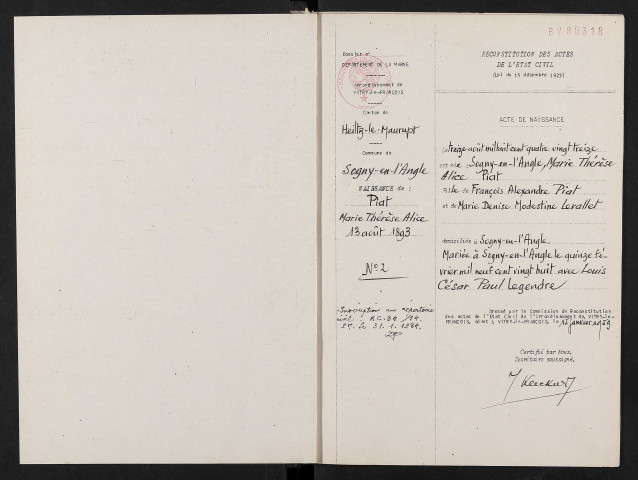 BV 80318
Dossier n°
DEPARTEMENT DE LA MARNE
Arrondissement de
VITRY-le-FRANCOIS
Canton de
Heiltz-le-Maurupt
Commune de
Sogny-en-l'Angle
NAISSANCE de :
Piat
Marie Thérèse Alice
13 août 1893
N° 2
Inscription au répertoire
civil : R.C. 84 /14.
le 31.1.1984.
RECONSTITUTION DES ACTES
DE L'ETAT CIVIL
(Loi du 15 décembre 1923)
ACTE DE NAISSANCE
Le treize août mil huit cent quatre vingt treize
est née à Sogny-en-l'Angle, Marie Thérèse
Alice Piat
fille de François Alexandre Piat
et de Marie Denise Modestine Levallet
domiciliés à Sogny-en-l'Angle
Mariée à Sogny-en-l'Angle le quinze fé-
vrier mil neuf cent vingt huit avec Louis
César Paul Legendre
Dressé par la Commission de Reconstitution
des actes de l'Etat Civil de l'arrondissement de VITRY-le-
FRANCOIS, séant à VITRY-le-FRANCOIS, le 12 janvier 1959
Certifié par Nous,
Secrétaire soussigné,